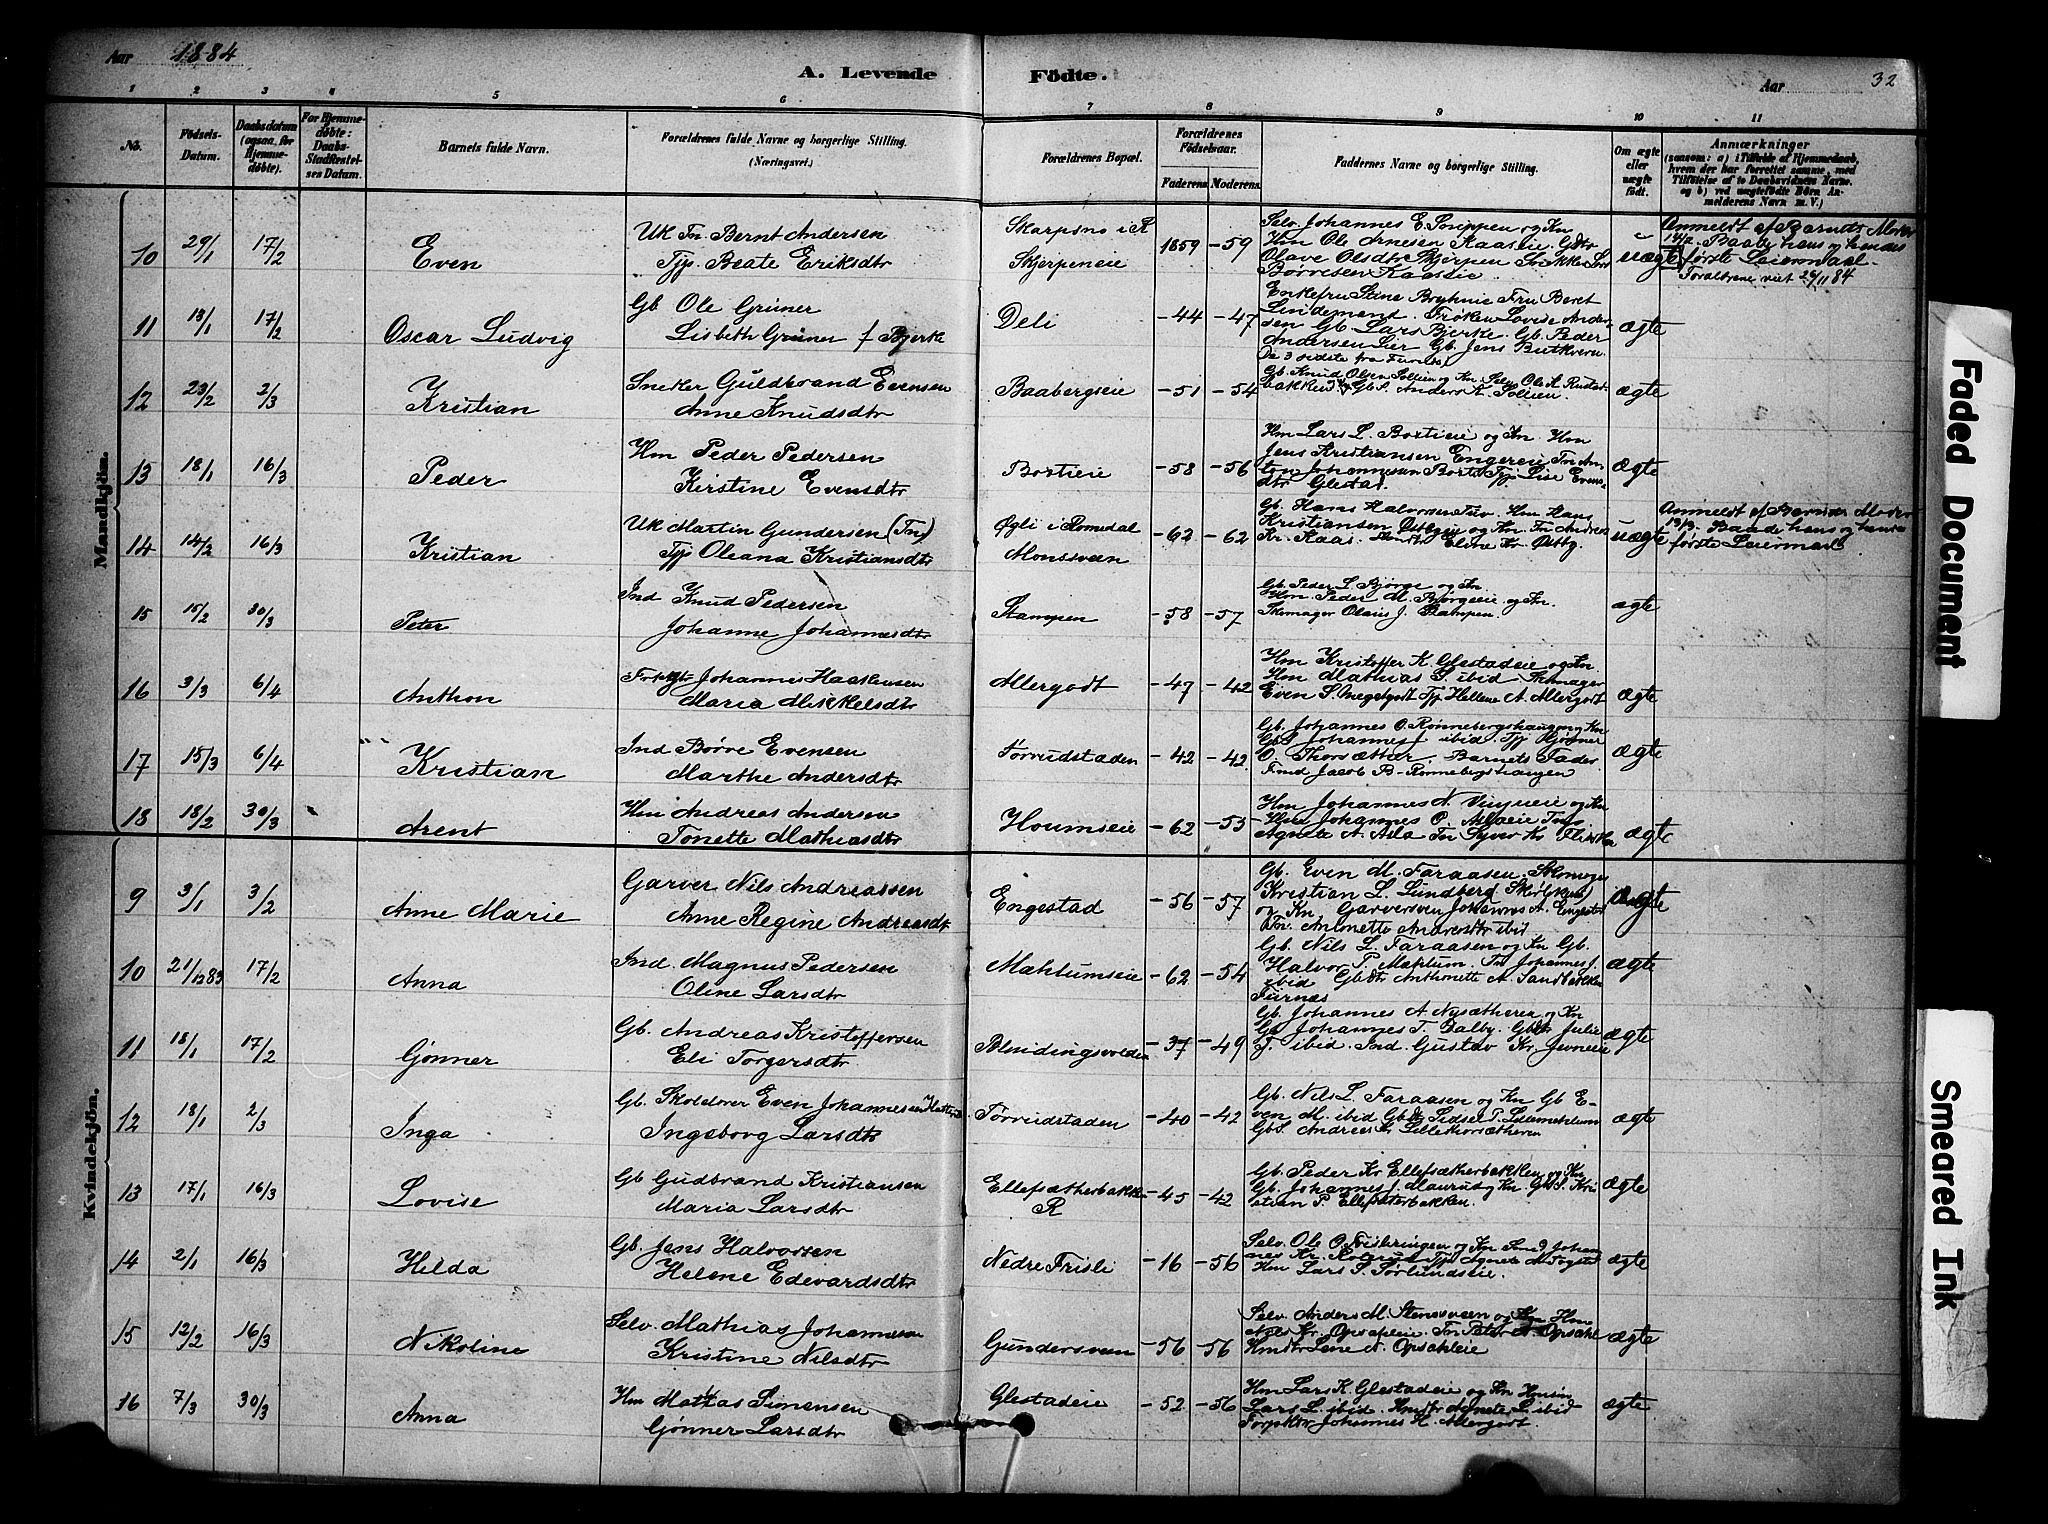 Aar 1884
A. Levende Födte.
Aar
32
1 2 3 4 5 6 7 8 9 10 11
No.
Födsels-Datum.
Daabsdatum (ogsaa for Hjemmedöbte).
For Hjemmedöbte: Daabs-Stadfæstelses Datum.
Barnets fulde Navn.
Forældrenes fulde Navne og borgerlige Stilling. (Næringsvei.)
Forældrenes Bopæl.
Forældrenes Födselsaar.
Faderens. Moderens.
Faddernes Navne og borgerlige Stilling.
Om ægte eller uægte födt.
Anmærkninger
(saasom: a) i Tilfælde af Hjemmedaab, hvem der har forrettet samme, med Tilföielse af to Daabsvidners Navne, og b) ved uægtefödte Börn Anmelderens Navn m. V.)
Mandkjön.
10 29/1 17/2 Even
Uk Tn. Bernt Andersen
Tjp. Beate Eriksdtr
Skarpsno i R
Skjerpeneie
1859 -59
Selv. Johannes E. Snippen og Kn
Hm Ole Arnesen Kaaseie. Gbdtr
Olave Olsdtr Skjerpen
Børresen Kaaseie
uægte
Anmeldt af Barnets Moder
14/2. Baade hans og hendes
første Leiermaal
Forældrene viet 26/11 84
11 13/1 17/2 Oscar Ludvig
Gb Ole Grüner
Lisbeth Grüner f Bjerke
Deli
-44 -47
Enkefru Stine Bryhnie Fru Beret
Lindemand. Frøken Lovise Ander-
sen Gb Lars Bjerke. Gb. Peder
Andersen Lier Gb. Jens Butkvern
De 3 sidste fra Furnes
ægte
12 23/2 2/3 Kristian
Snekker Guldbrand Evensen
Anne Knudsdtr
Baabergseie
-51 -54
Gb. Knud Olsen Sollien og Kn. Selv. Ole A. Rustad-
bakken Gbs. Anders A. Sollien.
ægte
13 18/1 16/3 Peder
Hm Peder Pedersen
Kirstine Evensdtr
Bortieie
-58 -56
Hm Lars L. Bortieie og Kn. Hm
Jens Kristiansen Engereie Tn An-
ton Johannesen Tjp Lise Evens-
dtr Glestad.
ægte
14 14/2 16/3 Kristian
Uk Martin Gundersen (Tn)
Tjp Oleana Kristiansdtr
Øgli i Romedal
Monssveen
-62 -62
Gb. Hans Halvorsen Hm Hans
Kristiansen og Kn Tn Andreas
Kr. Kaas. Eline Kr.
uægte
Anmeldt af Barnets Moder
13/3. Baade hans og hendes
første Leiermaal
15 15/2 30/3 Peter
Ind Knud Pedersen
Johanne Johannesdtr
Stampen
-58 -57
Gb. Peder L. Bjørge og Kn.
Hm. Peder M. Bjørgeeie og Kn.
Skomager Olaus J. Stampen.
ægte
16 3/3 6/4 Anthon
Johannes Haakensen
Maria Mikkelsdtr
Allergodt
-47 -42
Hm Kristoffer K. Glestadeie og Kn.
Hm Mathias S. ibid Skomager
Even S. Tjp Hellene A Allergodt
ægte
17 15/3 6/4 Kristian
Ind Børre Evensen
Marthe Andersdtr
Tørrudstaden
-42 -42
Gb. Johannes O. Rønnebergshaugen og Kn
Gbs Johannes J ibid. Tjp Gjønner
O. Thorsæther. Barnets Fader.
Jacob B. Rønnebergshaugen
ægte
18 18/2 30/3 Arent
Hm Andreas Andersen
Tonette Mathiasdtr
Houmseie
-62 -53
Hm Johannes N. og Kn
Hm Johannes O.
Agnete A. Tn Syver Kr
ægte
Kvindekjön.
9 3/1 3/2 Anne Marie
Garver Nils Andreassen
Anne Regine Andreasdtr
Engestad
-56 -57
Gb. Even M. Faraasen. Skomager
Kristian L. Lundberg
og Kn. Garversven Johannes A. Engestad
Antonette Andreasdtr ibid
ægte
10 21/12 83 17/2 Anna
Ind. Magnus Pedersen
Oline Larsdtr
Mæhlumseie
-62 -54
Gb. Nils L. Faraasen og Kn Gb.
Halvor P. Mæhlum. Tn Johannes J.
ibid Gbdtr Anthonette A Sandbakken
Furnæs
ægte
11 18/1 17/2 Gønner
Gb. Andreas Kristoffersen
Eli Torgersdtr
Blindingsvolden
-37 -49
Gb. Johannes A Nysætheren og Kn
Gb Johannes T. Dalby. Gbdtr Julie
J. ibid. Ind. Gustav Kr. Jevneeie
ægte
12 18/1 2/3 Inga
Gb. Skolelærer Even Johannesen
Ingeborg Larsdtr
Tørrudstaden
-40 -42
Gb. Nils L. Faraasen og Kn Gb E-
ven M. ibid Gbdtr Sidsel P.
Gbs. Andreas Kr Lillethorsætheren
ægte
13 17/1 16/3 Lovise
Gb Gudbrand Kristiansen
Maria Larsdtr
Ellefsætherbakken
R
-45 -42
Gb. Peder Kr Ellefsætherbakken og Kn
Gb. Johannes J. Maurud og Kn Gbs. Kri
stian P. Ellefsæterbakken.
ægte
14 2/1 16/3 Hilda
Gb. Jens Halvorsen
Helene Edevardsdtr
Nedre Frisli
-16 -56
Selv. Ole O. og Kn Smed Johan-
nes Kr. Tjp Agnete A
Hm Lars P. Torlundseie.
ægte
15 12/2 16/3 Nikoline
Selv. Mathias Johannesen
Kristine Nilsdtr
Gundersveen
-56 -56
Selv. Anders M. Stensveen og Kn Hm
Nils Kr Opsahleie. Tn Peter A Opsahl
Hmdtr Lene N. Opsahleie
ægte
16 7/3 30/3 Anna
Hm Mathias Simensen
Gønner Larsdtr
Glestadeie
-52 -56
Hm Lars K. Glestadeie og Kn
Lars L. ibid. Hmdtr Agnete L ibid
Johannes H. Allergodt.
ægte
Faded Document
Smeared Ink